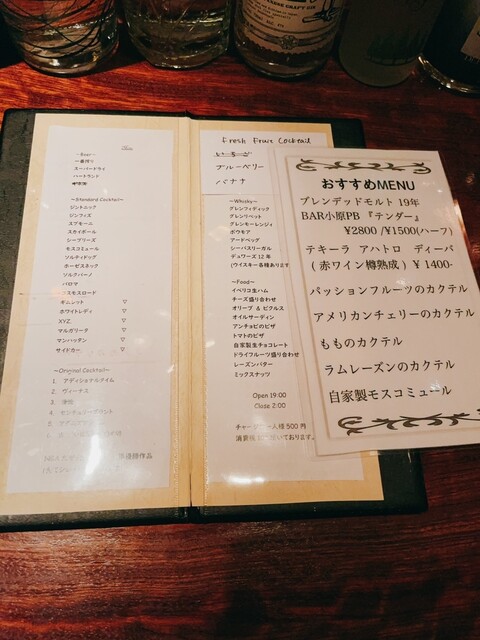 ~Beer~
一番搾り
スーパードライ
ハートランド
~Standard Cocktail~
ジントニック
ジンフィズ
スプモーニ
スカイボール
シーブリーズ
モスコミュール
ソルティドッグ
ホーセズネック
ソルクバーノ
パロマ
コスモスロード
ギムレット ▽
ホワイトレディ ▽
XYZ. ▽
マルガリータ ▽
マンハッタン ▽
サイドカー ▽
~Original Cocktail~
1. アディショナルタイム
2. ヴィーナス
3.
4.
5.
6.
Fresh Fruis Cocktail
いちご
ブルーベリー
バナナ
~Whisky~
グレンフィディック
グレンリベット
グレンモーレンジィ
ボウモア
アードベッグ
シーバスリーガル
デュワーズ 12 年
(ウイスキー各種あります
~Food~
イベリコ生ハム
チーズ盛り合わせ
オリーブ & ピクルス
オイルサーディン
アンチョビのピザ
トマトのピザ
自家製生チョコレート
ドライフルーツ盛り合わせ
レーズンバター
ミックスナッツ
Open 19:00
Close 2:00
チャージ 一人様 500 円
消費税 いております。
おすすめMENU
ブレンデッドモルト 19年
BAR小原PB 『テンダー』
¥2800 /¥1500(ハーフ)
テキーラ アハトロ ディーバ
( 赤ワイン樽熟成 ) ¥ 1400-
パッションフルーツのカクテル
アメリカンチェリーのカクテル
もものカクテル
ラムレーズンのカクテル
自家製モスコミュール